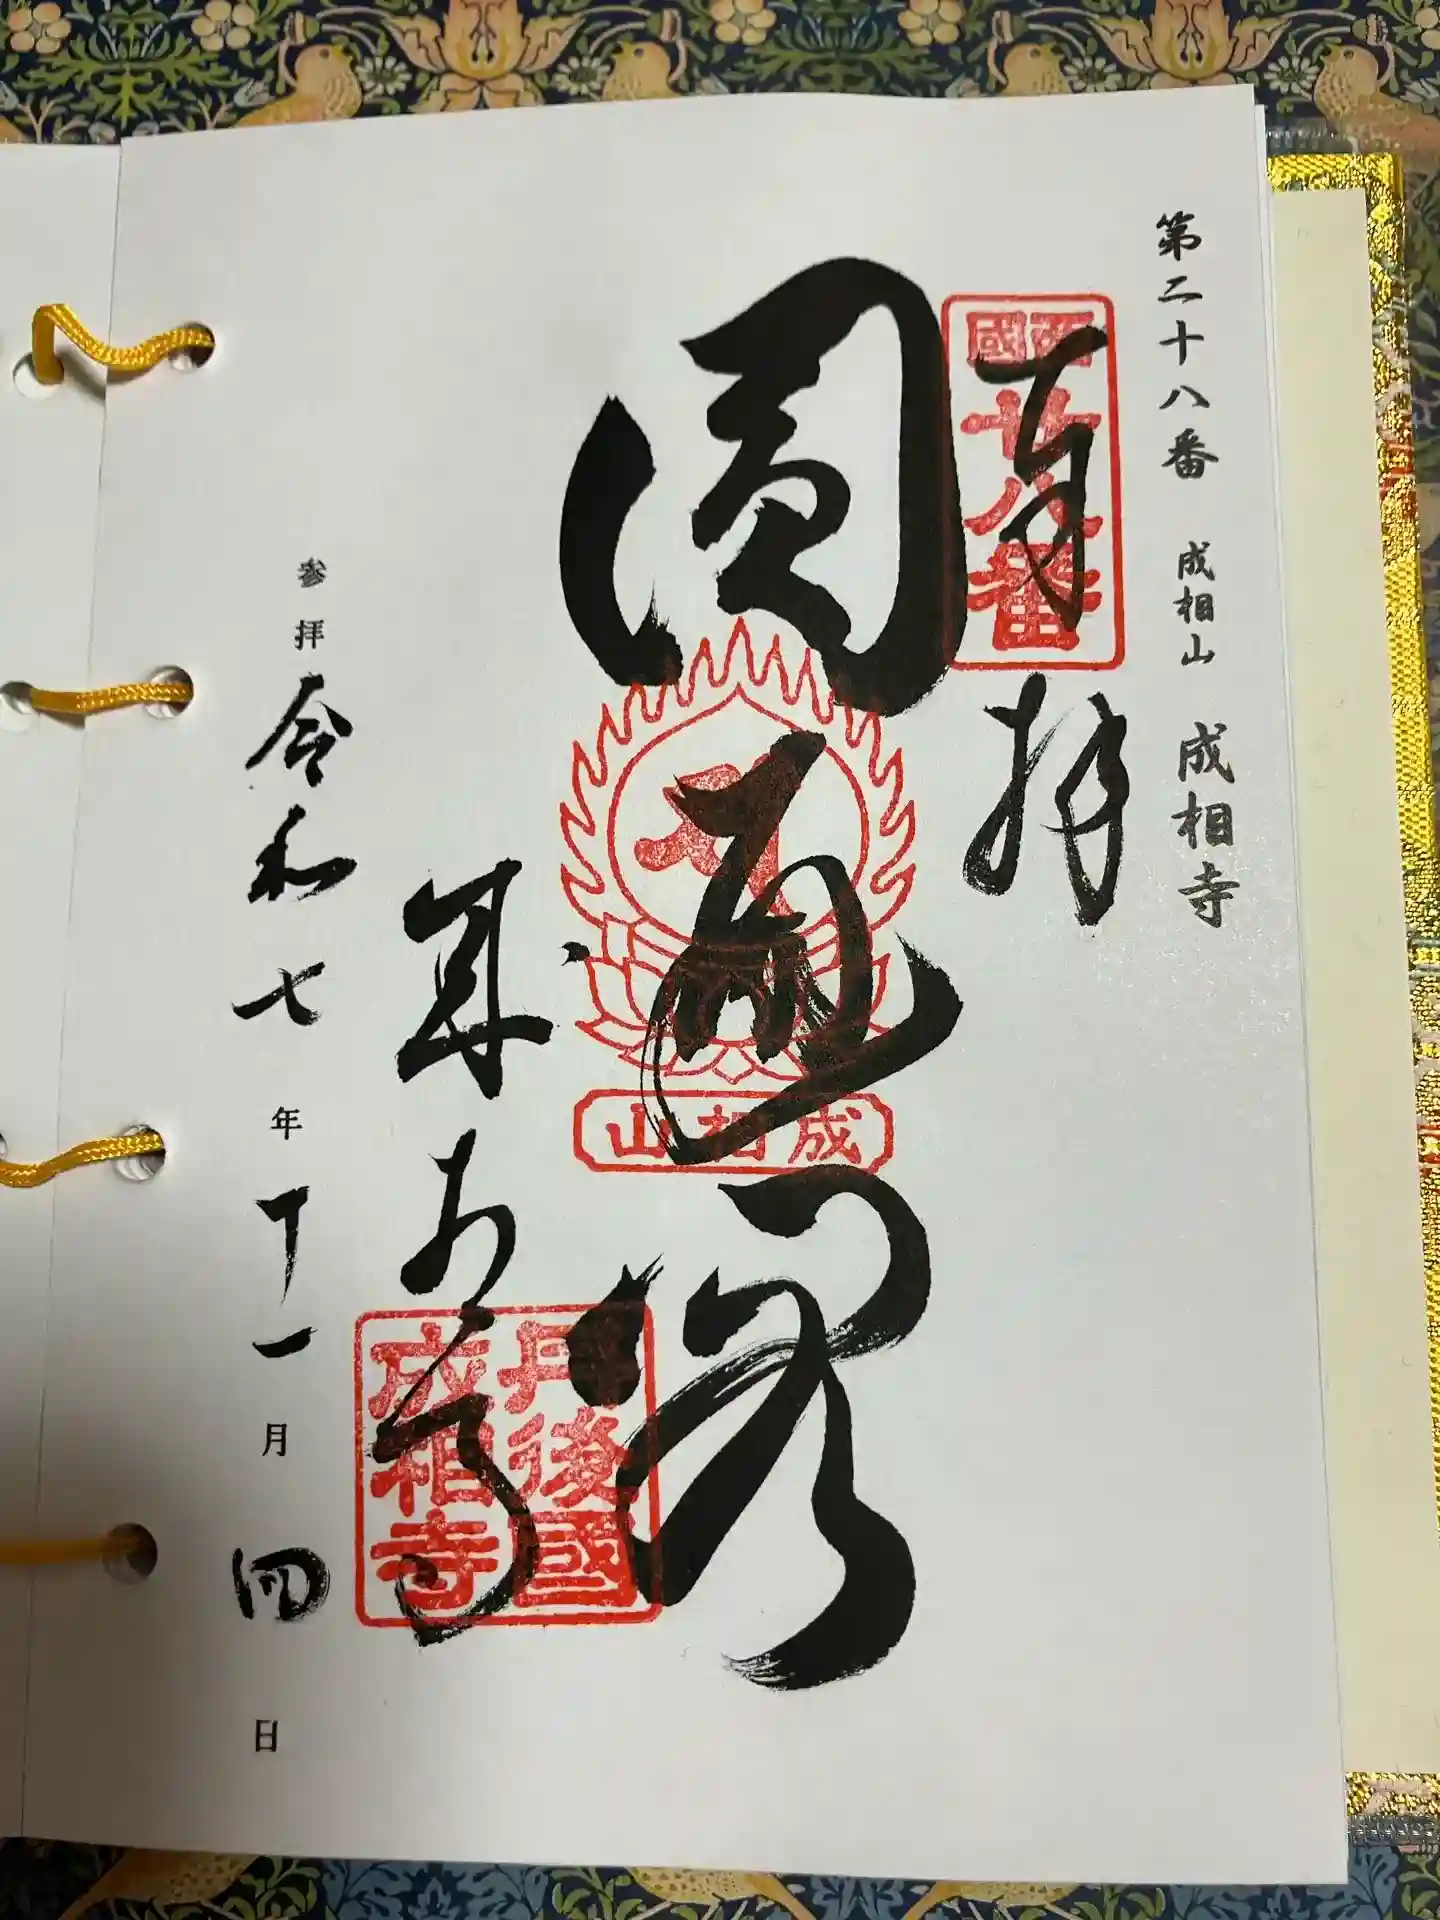 第二十八番 成相山 成相寺
奉拝
西國
廿八番
圓通閣
成相山
成相寺
丹後國
成相寺
参拝 令和七年十一月四日